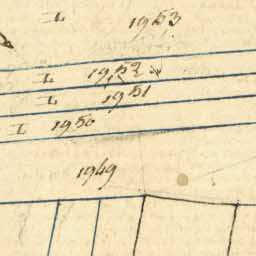 I 1953
I 1952
I 1951
I 1950
1949